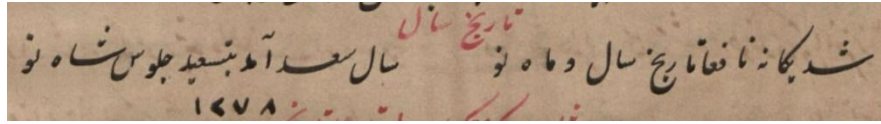 تاریخ سال
شد یکانه نافعا تاریخ سال و ماه نو سال سعد آمد بتسعید جلوس شاه نو
۱۲۷۸